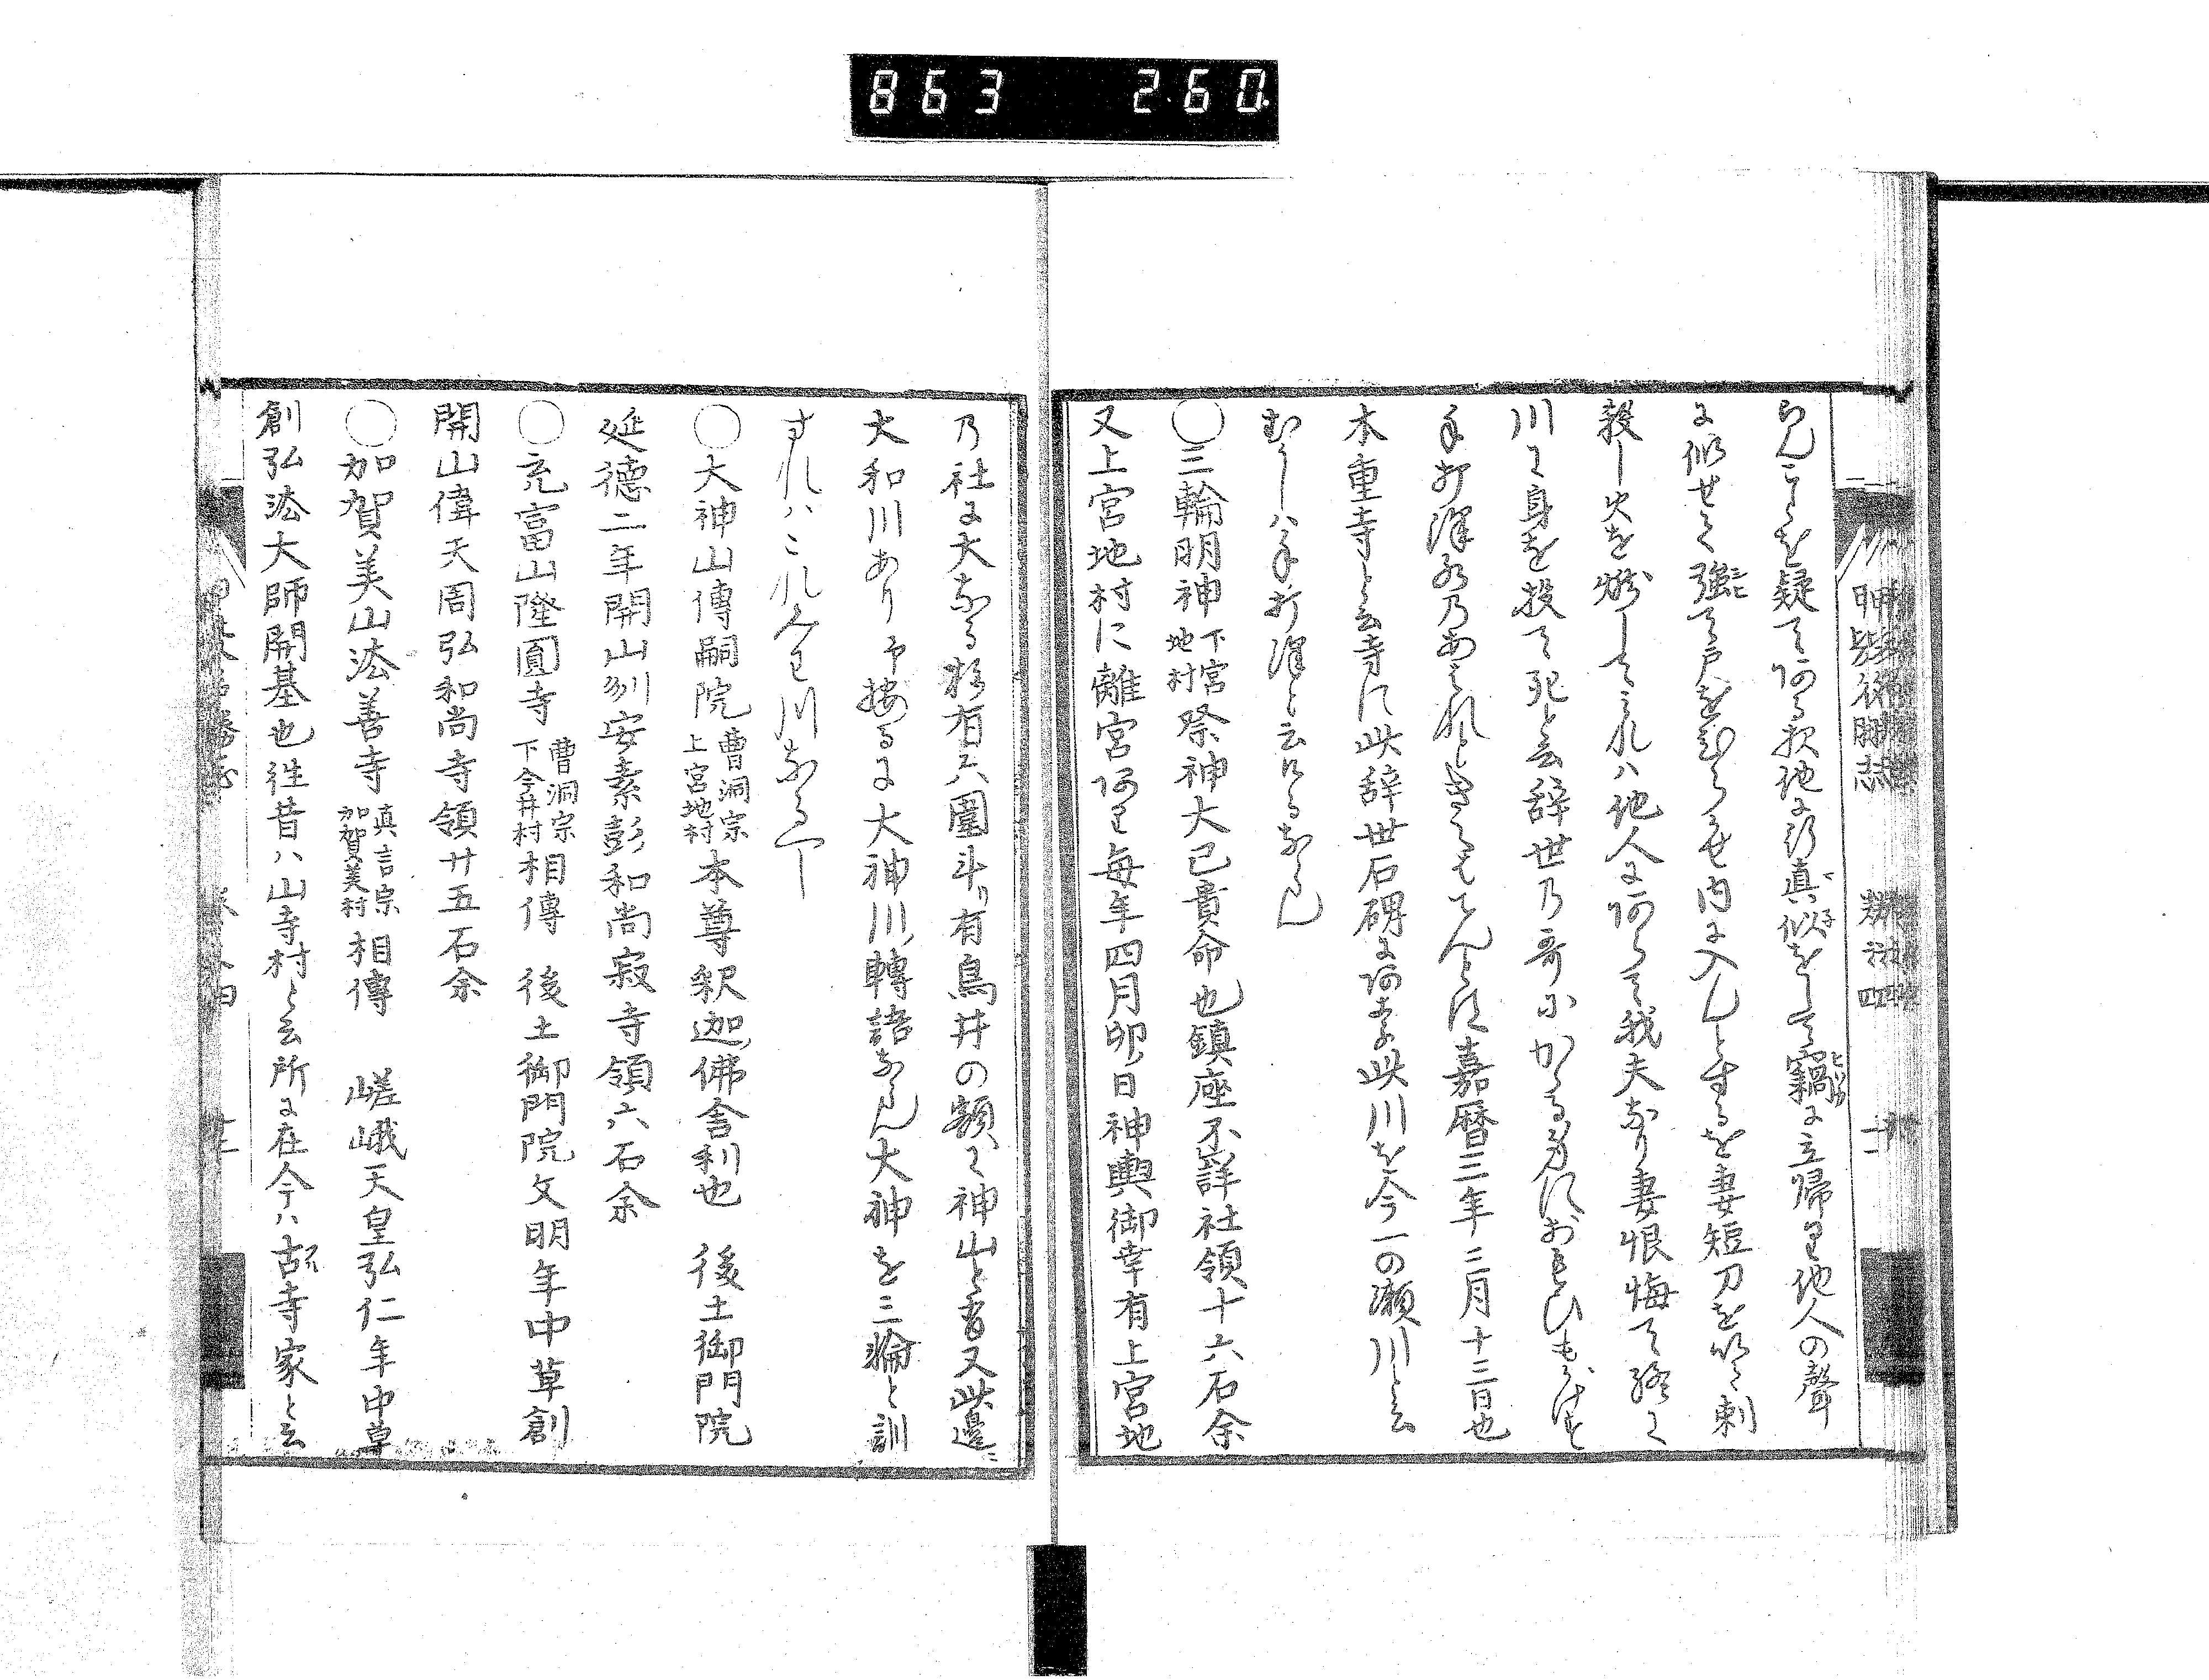 863 260
らんことを疑てある夜他に行真似をして竊に立帰り他人の聲
に似せて強て戸をひらかせ内に入んとするを妻短刀を以て刺
殺し火を燃してみれハ他人にあらて我夫なり妻恨悔て終に
川に身を投て死と云辞世乃哥に かゝる身におもひもかけす
手打澤乃あされときえてん 嘉暦三年三月十三日也
木重寺と云寺に此辞世石碑にあり此川を今一の瀬川と云
むかしハ手打澤と云けるならん
〇三輪明神 下宮地村 祭神大已貴命也鎮座不詳社領十六石余
又上宮地村に離宮あり毎年四月卯日神輿御幸有上宮地
乃社に大なる杉有六圍斗有鳥井の額に神山と書又此邊に
大和川あり予按るに大神川轉語ならん大神を三輪と訓
すれハこれみわ川なるへし
〇大神山傳嗣院 曹洞宗 上宮地村 本尊釈迦佛舎利也 後土御門院
延德二年開山州安素彭和尚寂寺領六石余
〇充富山隆圓寺 曹洞宗 下今井村 相傳 後土御門院文明年中草創
開山偉天周弘和尚寺領廿五石余
〇加賀美山法善寺 真言宗 加賀美村 相傳 嵯峨天皇弘仁年中草
創弘法大師開基也徃昔ハ山寺村と云所に在今ハ古寺家と云